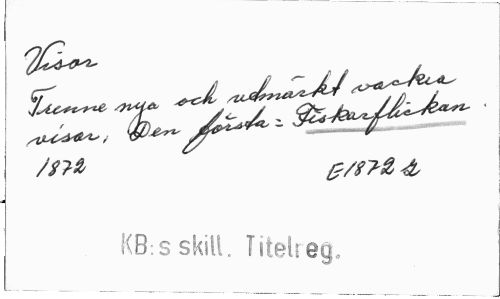 Visor
Trenne nya och utmärkt vackra
visor. Den första: Fiskarflickan.
1872 E1872 g
KB:s skill. Titelreg.